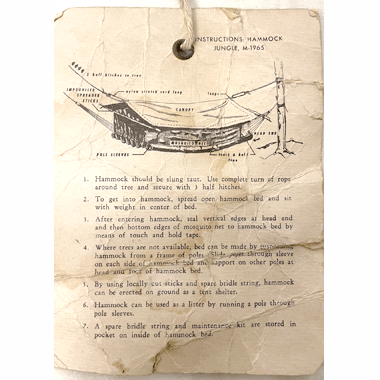 INSTRUCTIONS: HAMMOCK
JUNGLE, M-1965
3 half hitches to tree
IMPROVISED
SPREADER
STICKS
nylon stretch cord loop
loops
CANOPY
HEAD END
MOSQUITO NET
POLE SLEEVES
touch & hold
tape
1. Hammock should be slung taut. Use complete turn of rope
around tree and secure with 3 half hitches.
2. To get into hammock, spread open hammock bed and sit
with weight in center of bed.
3. After entering hammock, seal vertical edges at head end
and then bottom edges of mosquito net to hammock bed by
means of touch and hold tape.
4. Where trees are not available, bed can be made by suspending
hammock from a frame of poles. Slide poles through sleeve
on each side of hammock bed and support on other poles at
head and foot of hammock bed.
5. By using locally cut sticks and spare bridle string, hammock
can be erected on ground as a tent shelter.
6. Hammock can be used as a litter by running a pole through
pole sleeves.
7. A spare bridle string and maintenance kit are stored in
pocket on inside of hammock bed.